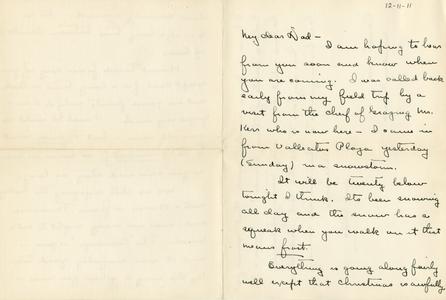 12-11-11
My dear Dad —
I am hoping to hear
from you soon and know when
you are coming. I was called back
early from my field trip by a
visit from the chief of Grazing Mr.
Kerr who is now here — I came in
from Vallecitos Plaza yesterday
(Sunday) in a snowstorm.
It will be twenty below
tonight I think. Its been snowing
all day and the snow has a
squeak when you walk on it that
means frost.
Everything is going along fairly
well except that Christmas is awfully